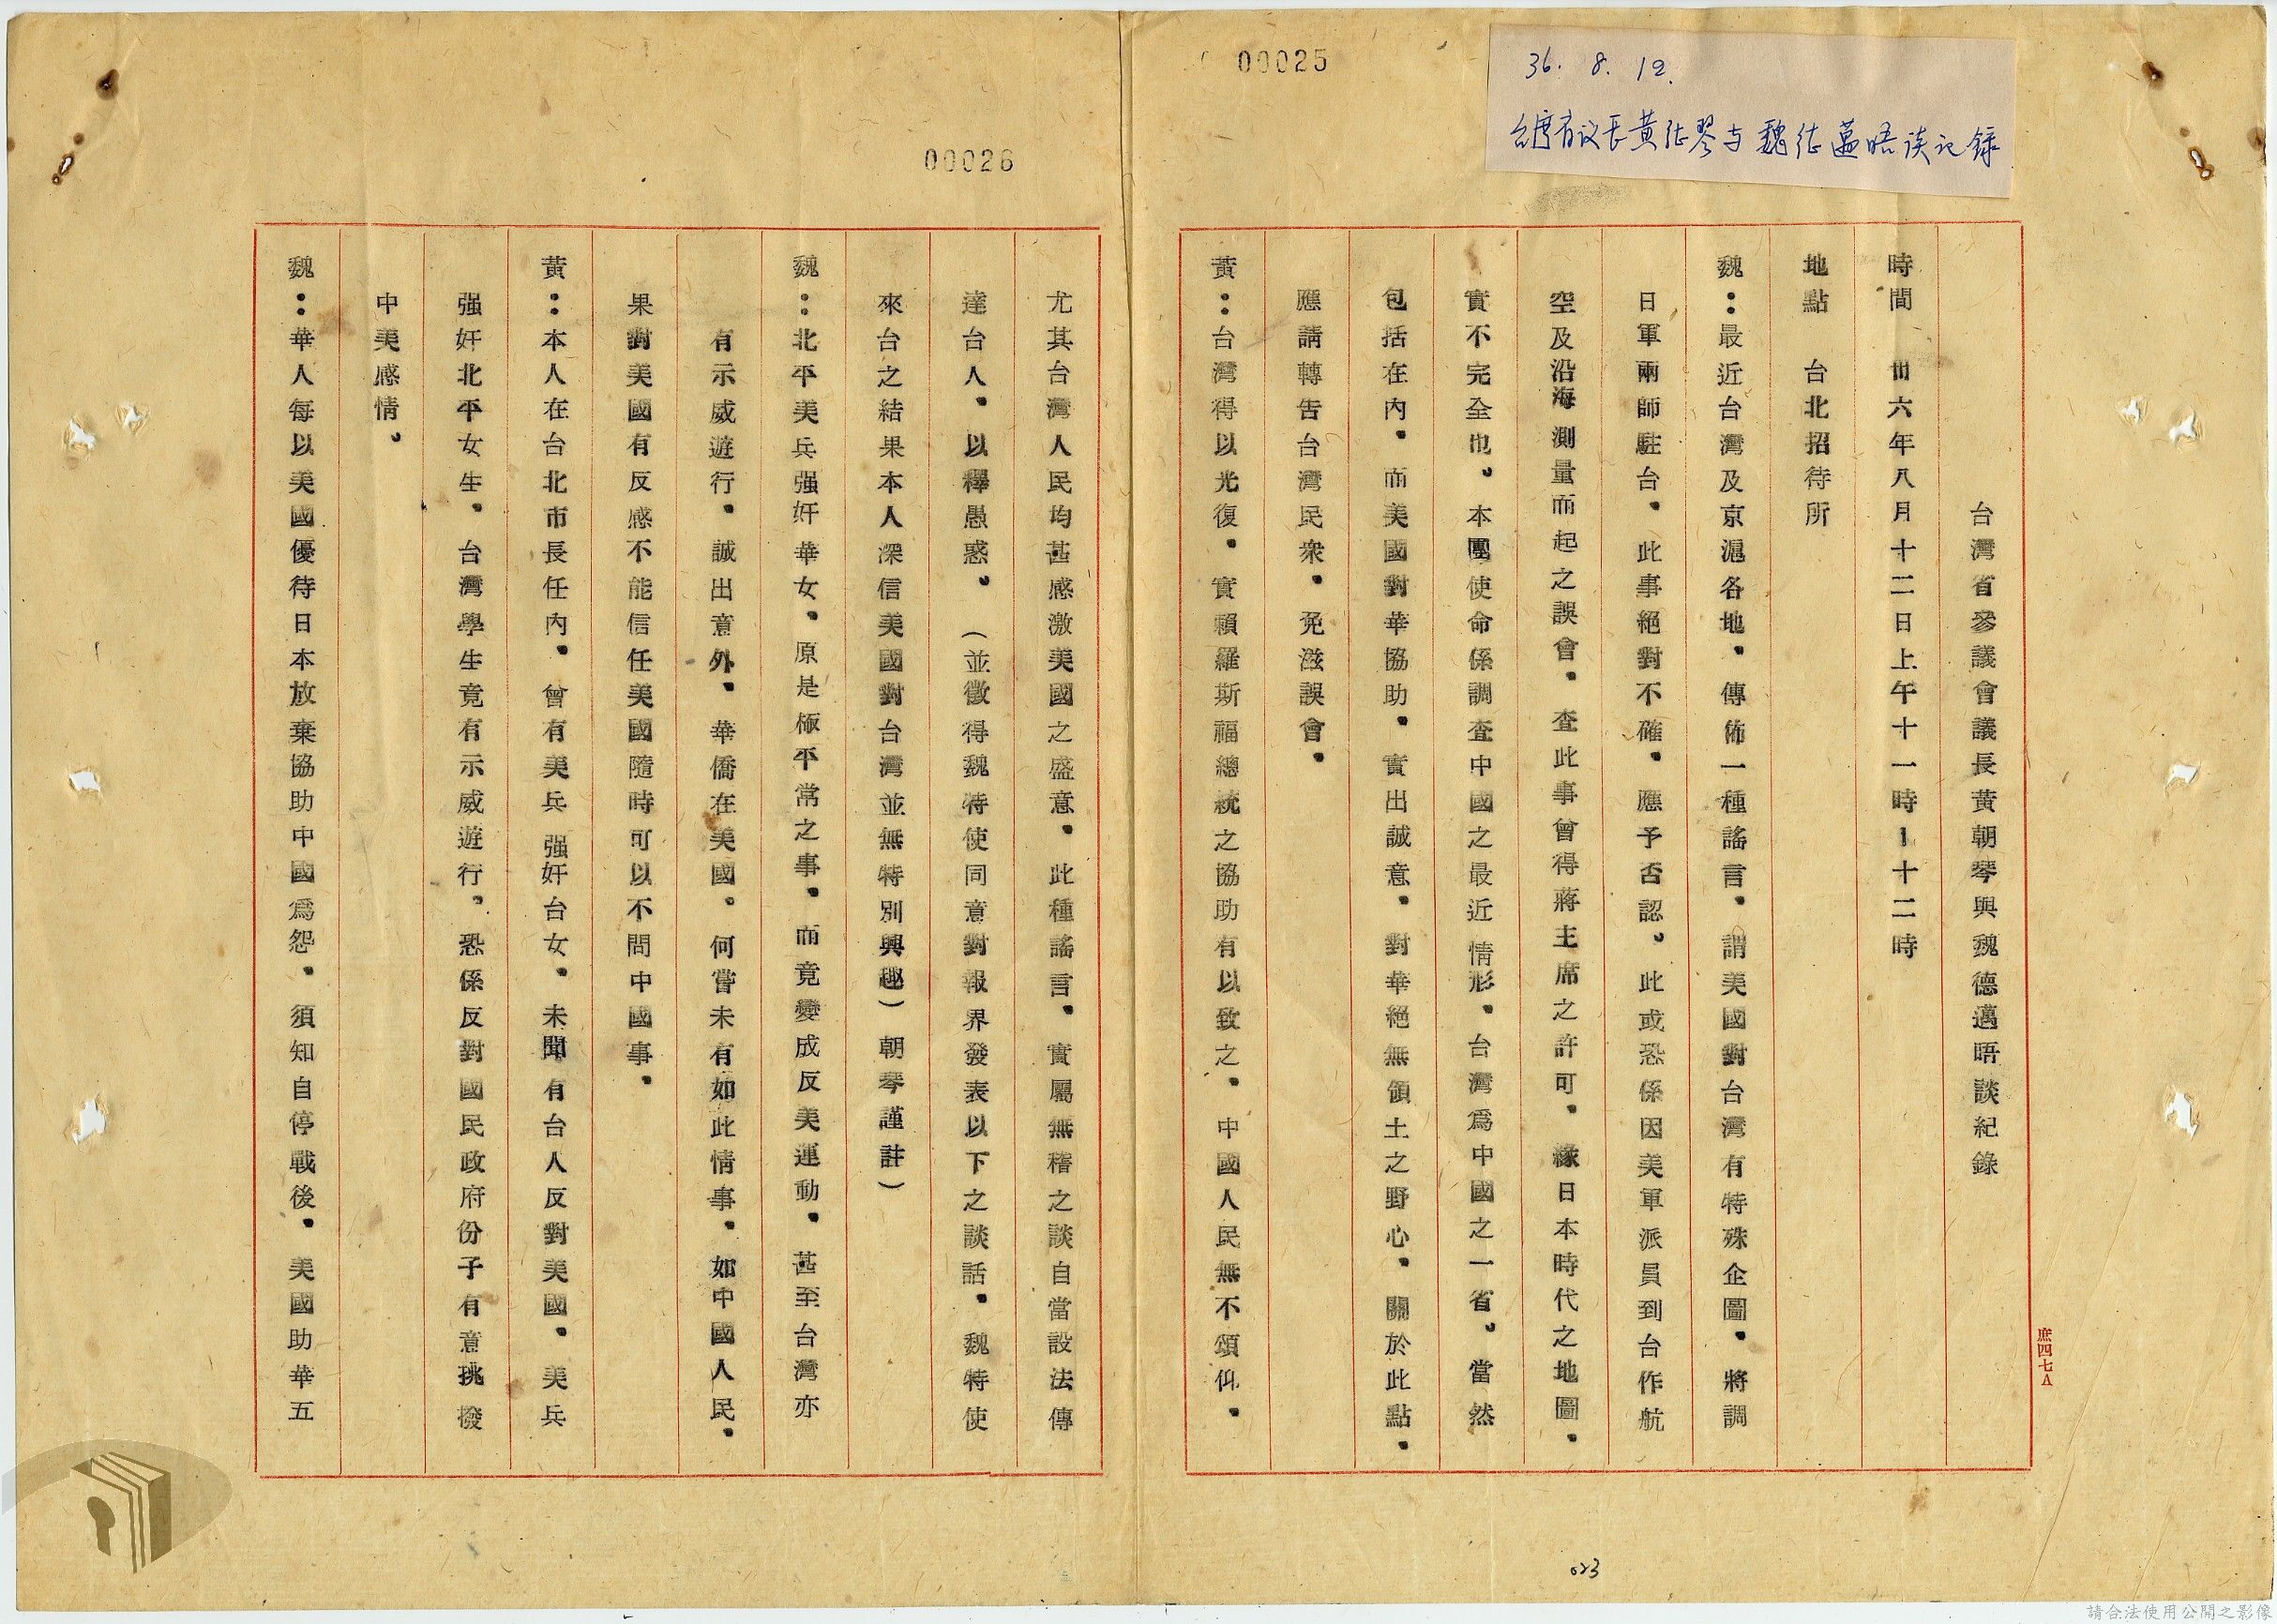 00025
36. 8. 12.
00026
台灣省參議會議長黃朝琴與魏德邁晤談紀錄
時間 卅六年八月十二日上午十一時—十二時
地點 台北招待所
魏：最近台灣及京滬各地，傳佈一種謠言，謂美國對台灣有特殊企圖，將調
日軍兩師駐台，此事絕對不確，應予否認。此或恐係因美軍派員到台作航
空及沿海測量而起之誤會，查此事曾得蔣主席之許可，緣日本時代之地圖，
實不完全也。本團使命係調查中國之最近情形，台灣爲中國之一省，當然
包括在內，而美國對華協助，實出誠意，對華絕無領土之野心，關於此點，
應請轉告台灣民衆，免滋誤會。
黃：台灣得以光復，實賴羅斯福總統之協助有以致之，中國人民無不頌仰，
尤其台灣人民均甚感激美國之盛意，此種謠言，實屬無稽之談自當設法傳
達台人，以釋愚惑。（並徵得魏特使同意對報界發表以下之談話，魏特使
來台之結果本人深信美國對台灣並無特別興趣）朝琴謹註）
魏：北平美兵强奸華女，原是極平常之事，而竟變成反美運動，甚至台灣亦
有示威遊行，誠出意外，華僑在美國，何嘗未有如此情事，如中國人民，
果對美國有反感不能信任美國隨時可以不問中國事。
黃：本人在台北市長任內，曾有美兵强奸台女，未聞有台人反對美國，美兵
强奸北平女生，台灣學生竟有示威遊行，恐係反對國民政府份子有意挑撥
中美感情。
魏：華人每以美國優待日本放棄協助中國爲怨，須知自停戰後，美國助華五
庶四七A
023
請合法使用公開之影像